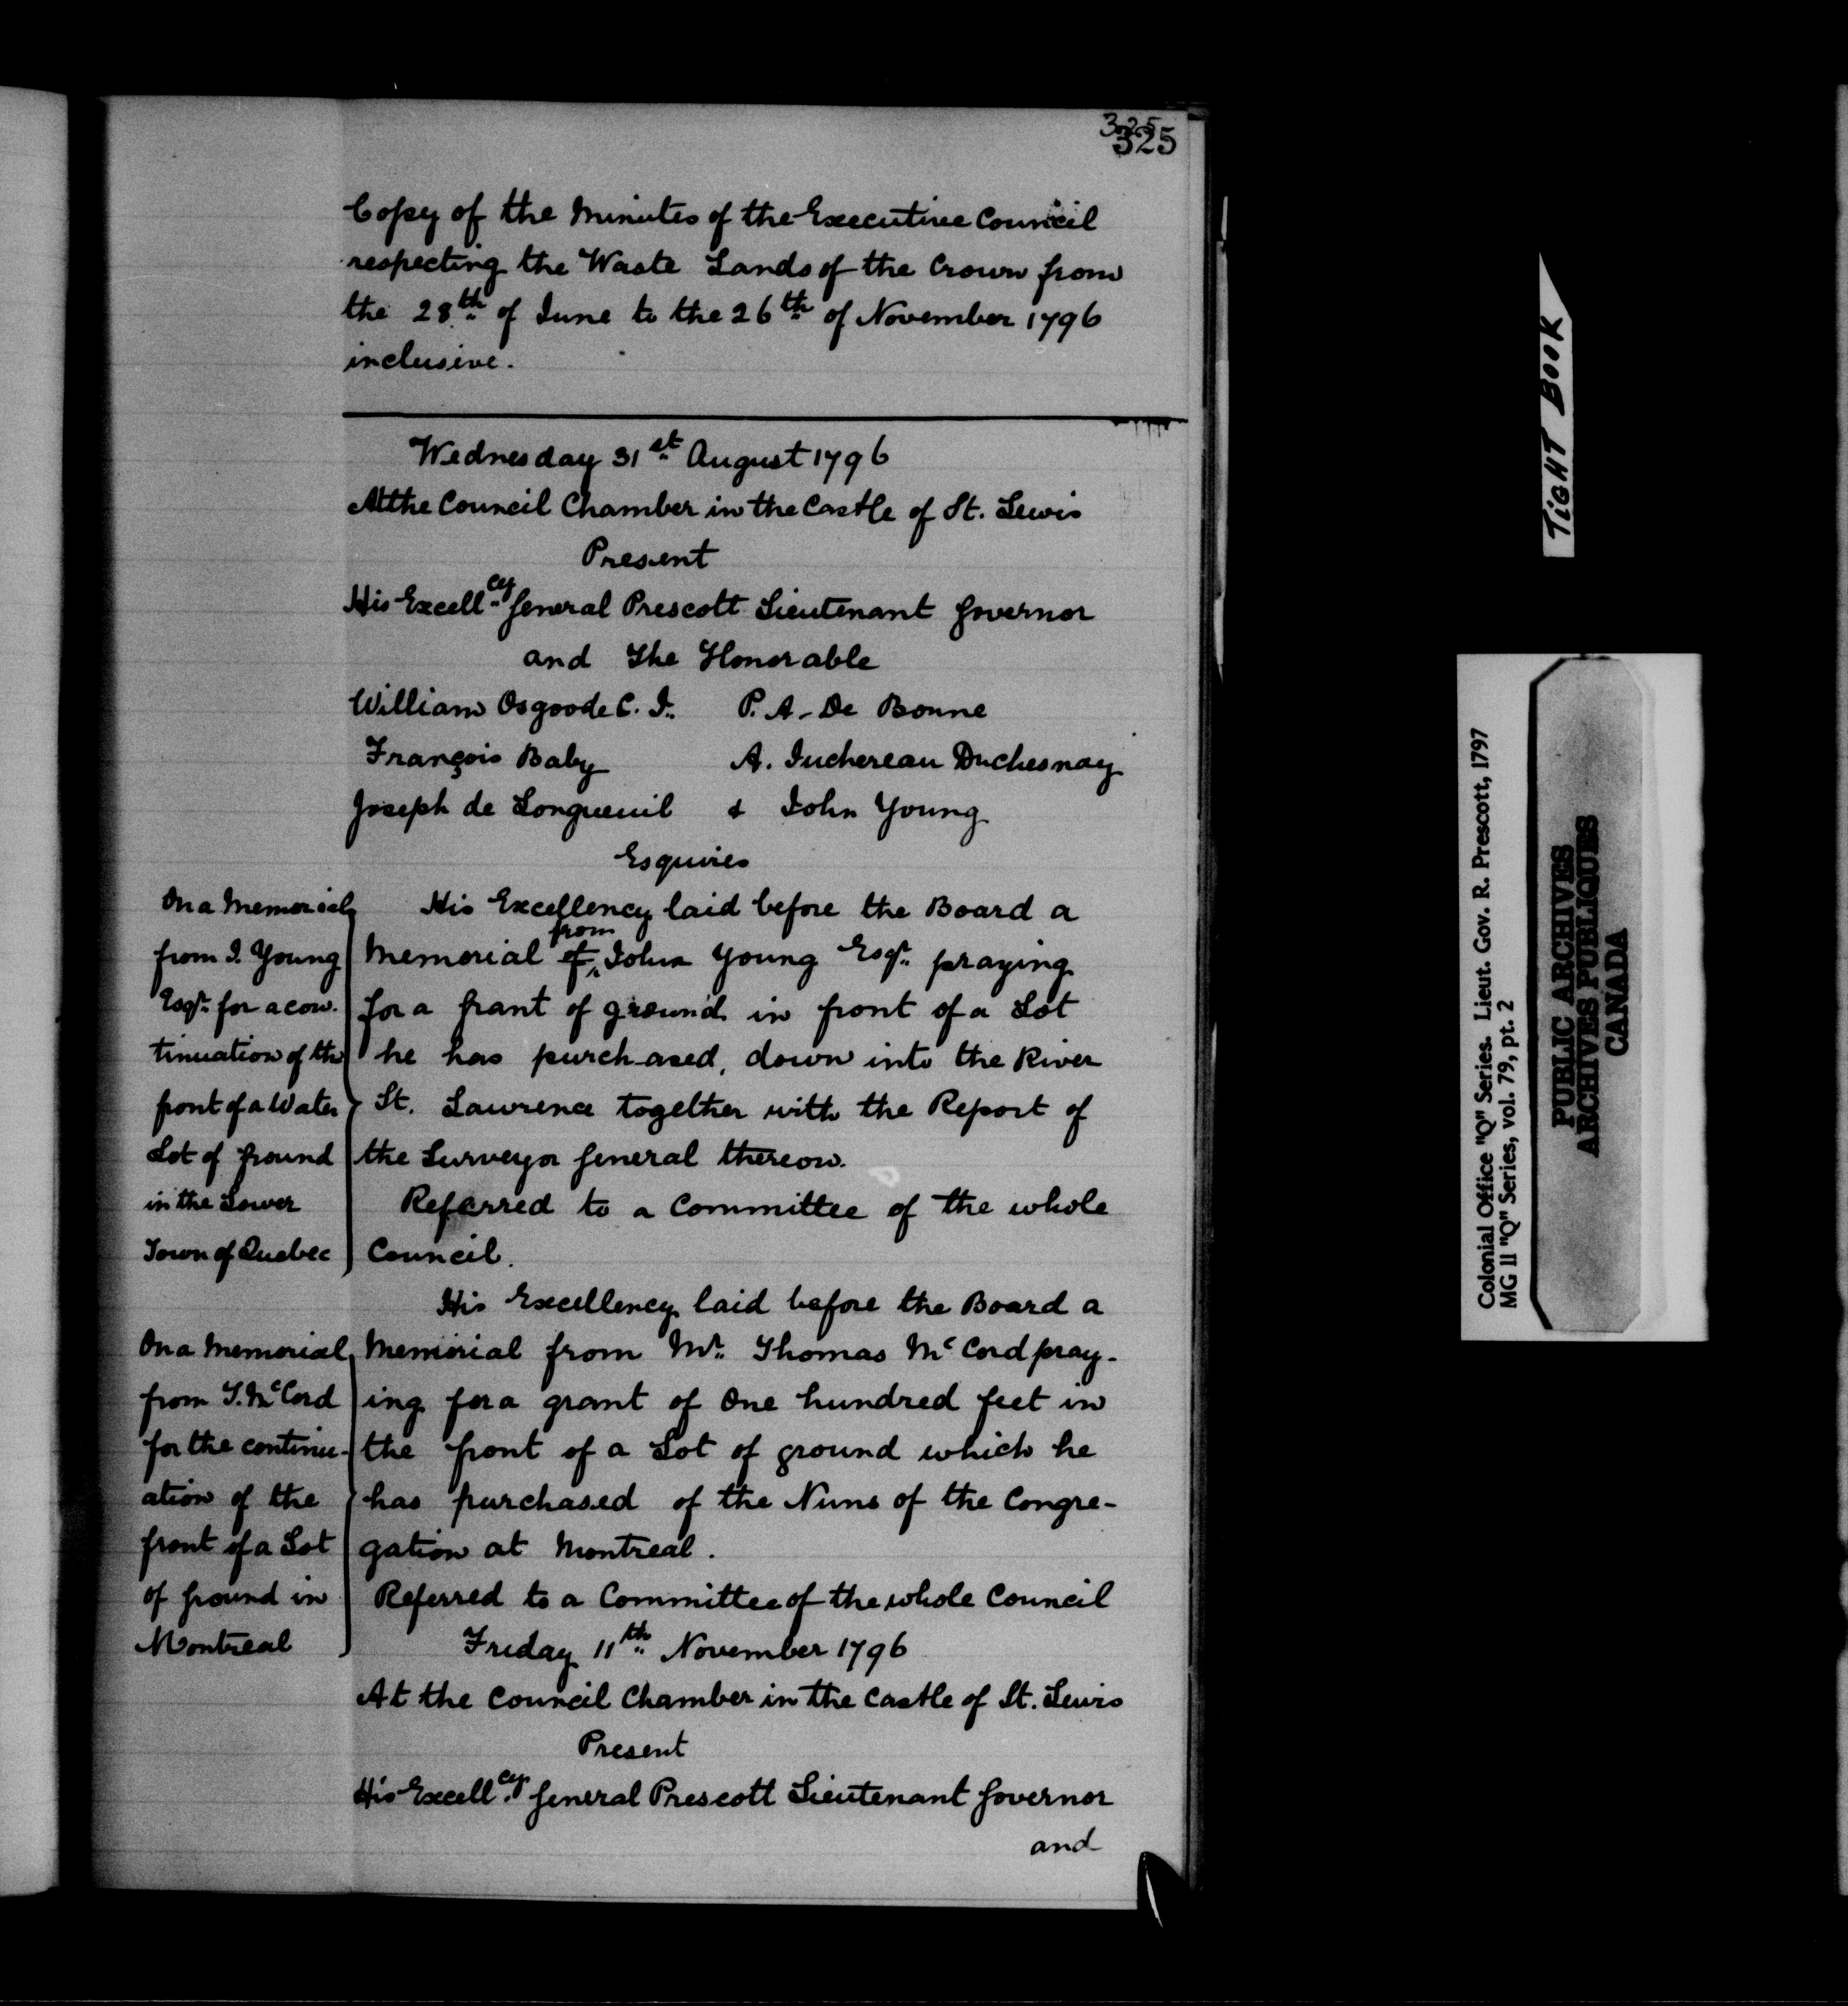 325
325
Copy of the Minutes of the Executive Council
respecting the Waste Lands of the Crown from
the 28th of June to the 26th of November 1796
inclusive.
Wednesday 31st August 1796
At the Council Chamber in the Castle of St. Lewis
Present
His Excellcy General Prescott Lieutenant Governor
and The Honorable
William Osgoode C. J. P. A. De Bonne
François Baby A. Juchereau Duchesnay
Joseph de Longueuil & John Young
Esquires
On a Memorial
from J. Young
Esqr. for a con-
tinuation of the
front of a Water
Lot of Ground
in the Lower
Town of Quebec
His Excellency laid before the Board a
Memorial of from John Young Esqr. praying
for a Grant of ground in front of a Lot
he has purchased, down into the River
St. Lawrence together with the Report of
the Surveyor General thereon.
Referred to a Committee of the whole
Council.
On a Memorial
from T. McCord
for the continu-
ation of the
front of a Lot
of Ground in
Montreal
His Excellency laid before the Board a
Memorial from Mr. Thomas McCord pray-
ing for a grant of One hundred feet in
the front of a Lot of ground which he
has purchased of the Nuns of the Congre-
gation at Montreal.
Referred to a Committee of the whole Council
Friday 11th November 1796
At the Council Chamber in the Castle of St. Lewis
Present
His Excellcy. General Prescott Lieutenant Governor
and
TIGHT BOOK
Colonial Office "Q" Series. Lieut. Gov. R. Prescott, 1797
MG 11 "Q" Series, vol. 79, pt. 2
PUBLIC ARCHIVES
ARCHIVES PUBLIQUES
CANADA